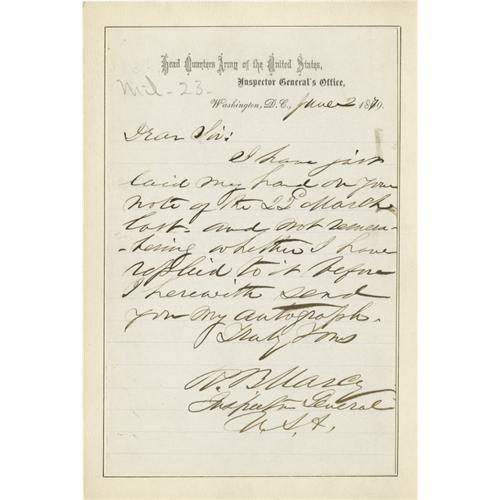 Head Quarters Army of the United States,
Inspector General's Office,
Mil-23-
Washington, D.C., June 2 1870.
Dear Sir:
I have just
laid my hand on your
note of the 22d March
last- and not remem-
-bering whether I have
replied to it before
I herewith send
you my autograph.
Truly Yours
R. B. Marcy
Inspector General
U.S.A.